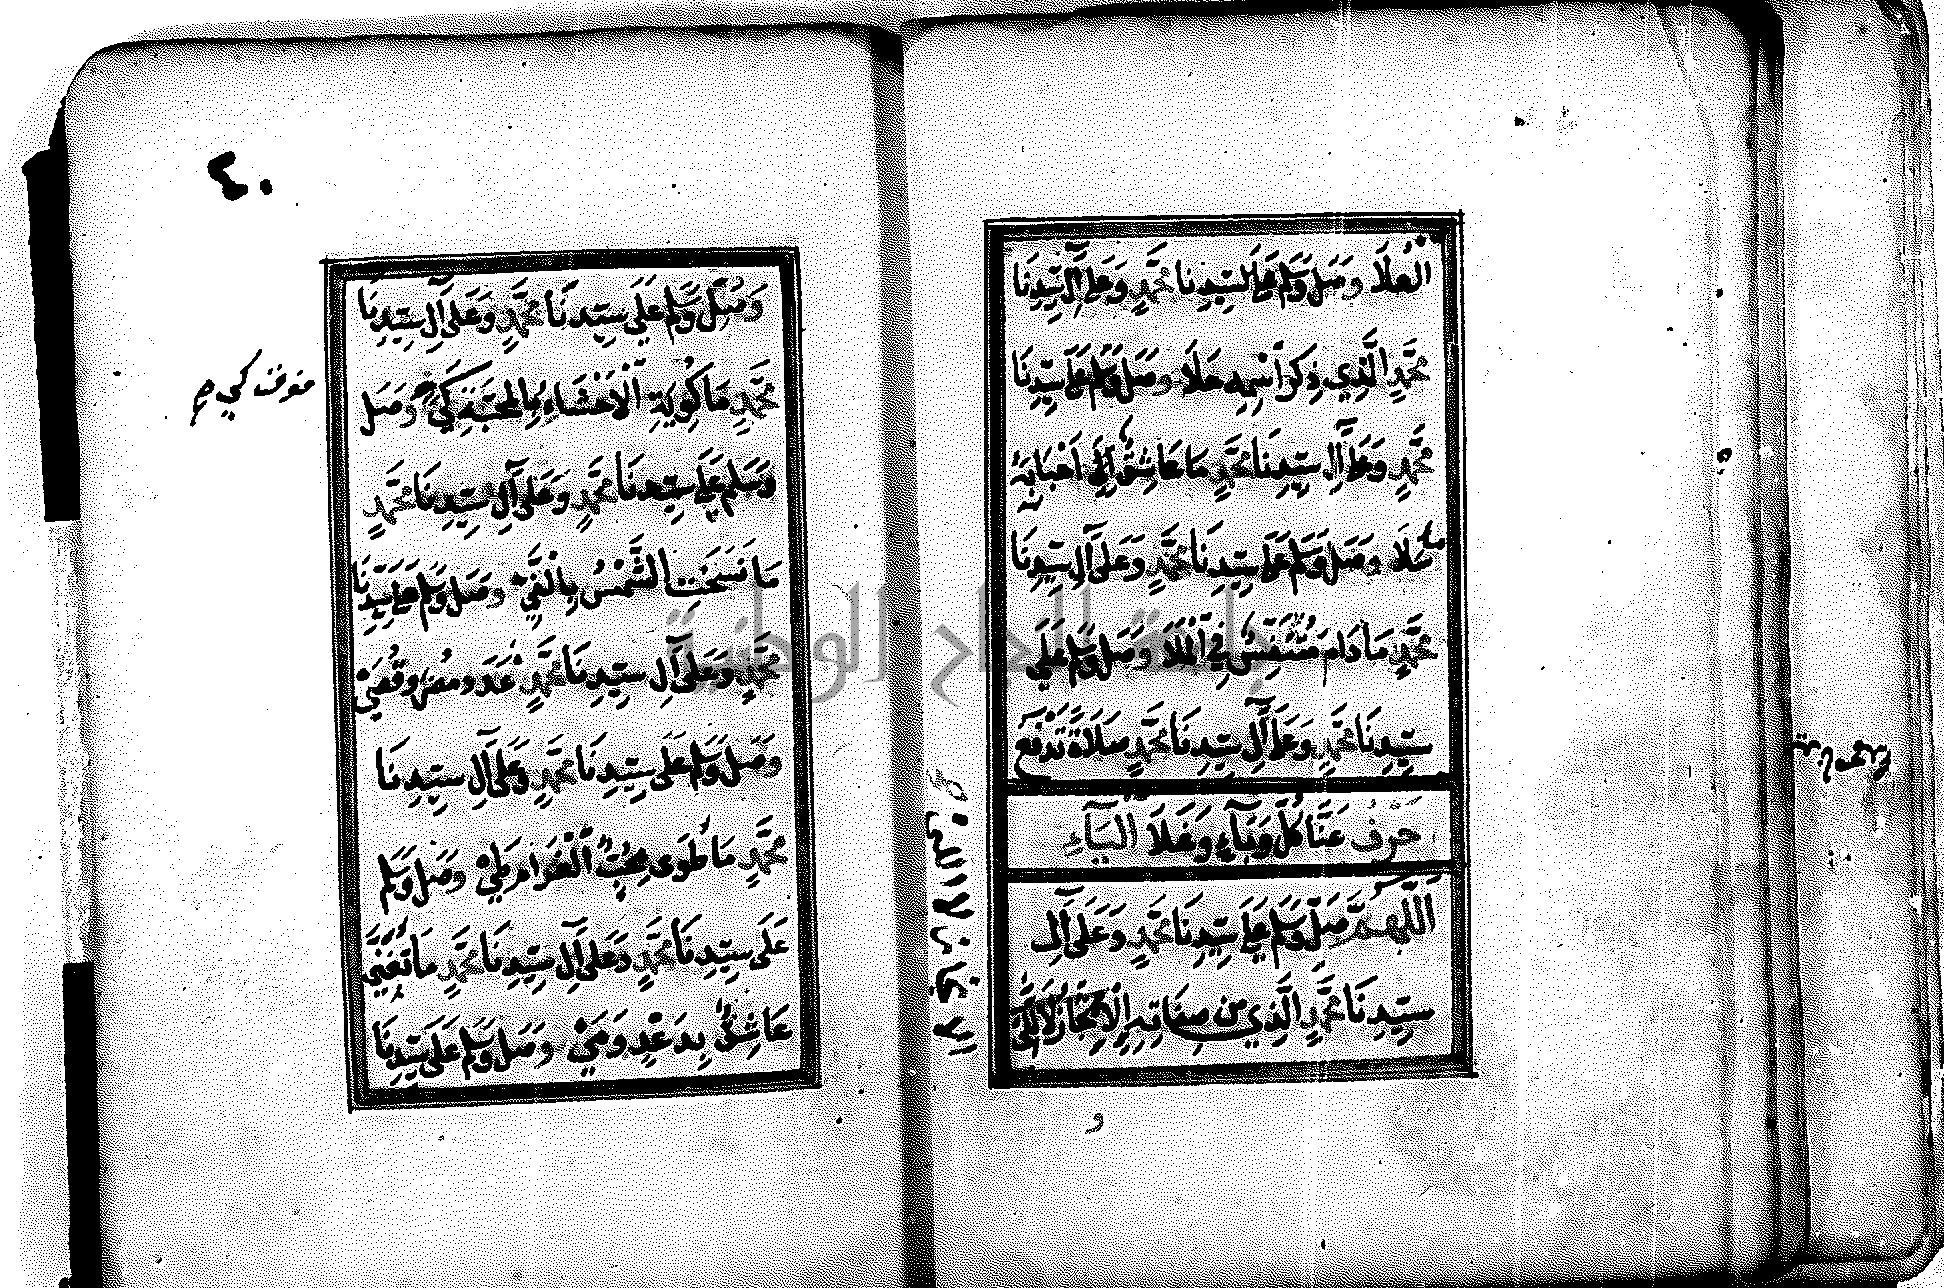 العلا وصل وسلم على سيدنا محمد وعلى آل سيدنا
محمد الذي ذكر اسمه حلا وصل وسلم على سيدنا
محمد وعلى آل سيدنا محمد ما عاشق إلى أحبابه
سلا وصل وسلم على سيدنا محمد وعلى آل سيدنا
محمد ما دام متنفس في الملا وصل وسلم على
سيدنا محمد وعلى آل سيدنا محمد صلاة تدفع
عنا كل وباء وغلا حرف الياء
اللهم صل وسلم على سيدنا محمد وعلى آل
سيدنا محمد الذي من صفاته
و
٤٠
وصل وسلم على سيدنا محمد وعلى آل سيدنا
محمد ما كويت الأحشاء بالمحبة كي وصل
وسلم على سيدنا محمد وعلى آل سيدنا محمد
ما نسخت الشمس بالفي وصل وسلم على سيدنا
محمد وعلى آل سيدنا محمد عدد مضر وقصي
وصل وسلم على سيدنا محمد وعلى آل سيدنا
محمد ما طوى محب الغرام طي وصل وسلم
على سيدنا محمد وعلى آل سيدنا محمد ما تغنى
عاشق بدعد ومي وصل وسلم على سيدنا
جامعة النجاح الوطنية